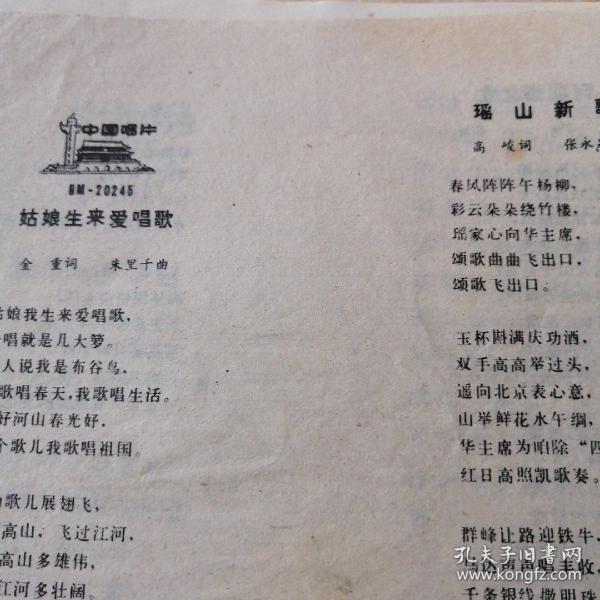 中国唱片
BM-20245
姑娘生来爱唱歌
金 重词 朱里千曲
姑娘我生来爱唱歌,
唱就是几大箩。
人说我是布谷鸟,
歌唱春天,我歌唱生活。
好河山春光好,
个歌儿我歌唱祖国。
歌儿展翅飞,
高山,飞过江河,
高山多雄伟,
江河多壮阔。
瑶山新歌
高 峻词 张永
春风阵阵午杨柳,
彩云朵朵绕竹楼,
瑶家心向华主席,
颂歌曲曲飞出口,
颂歌飞出口。
玉杯斟满庆功酒,
双手高高举过头,
遥向北京表心意,
山举鲜花水午绸,
华主席为咱除“四
红日高照凯歌奏。
群峰让路迎铁牛,
声声唱丰收,
千条银线撒明珠
孔夫子旧书网
www.kongfz.com